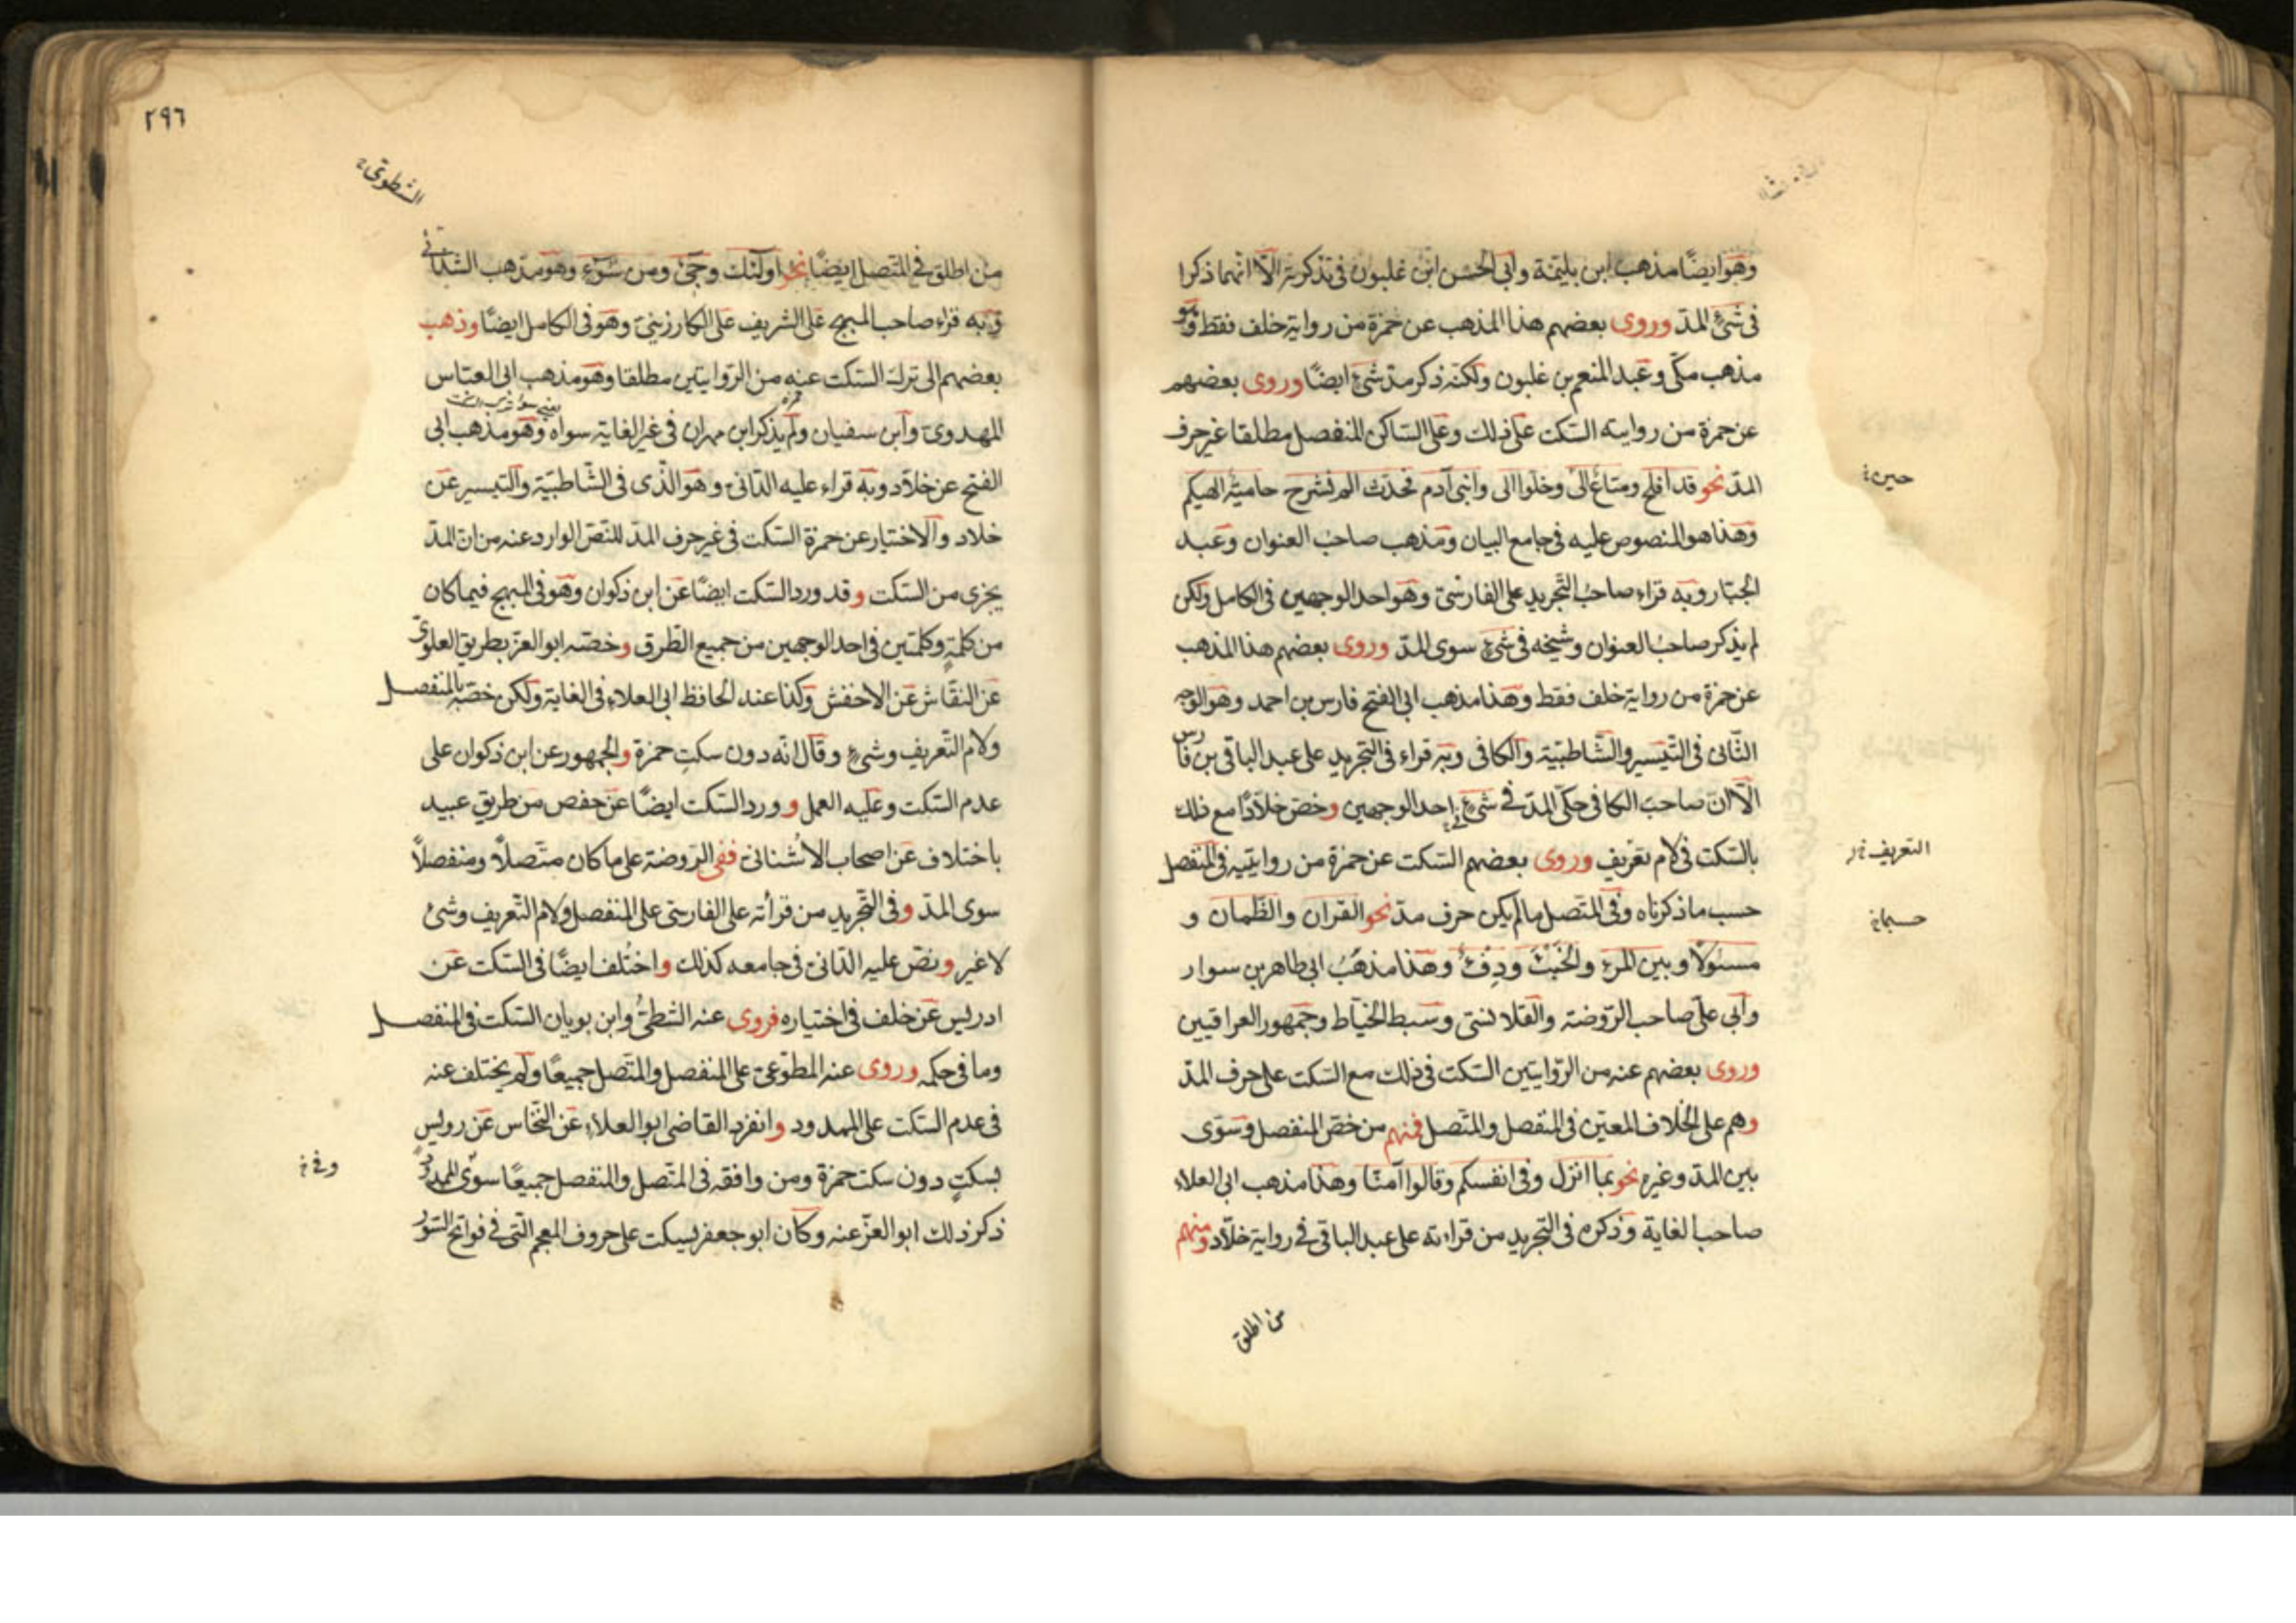 وهو ايضًا مذهب ابن بليمة وابى الحسن ابن غلبون فى تذكرته الّا انهما ذكرا
فى شئ المدّ وروى بعضهم هذا المذهب عن حمزة من رواية خلف فقط وهو
مذهب مكّى وعبد المنعم بن غلبون ولكنّه ذكر مدّ شئ ايضًا وروى بعضهم
عن حمزة من روايتيه السّكت على ذلك وعلى السّاكن المنفصل مطلقا غير حرف
المدّ نحو قد افلح ومتاع الى وخلوا الى وابنى آدم فحدث الم نشرح حامية الهيكم
حين
وهذا هو المنصوص عليه فى جامع البيان ومذهب صاحب العنوان وعبد
الجبّار وبه قراء صاحب التّجريد على الفارسّى وهو احد الوجهين فى الكامل ولكن
لم يذكر صاحب العنوان وشيخه فى شئ سوى المدّ وروى بعضهم هذا المذهب
عن حمزة من رواية خلف فقط وهذا مذهب ابى الفتح فارس بن احمد وهو الوجه
الثّانى فى التّيسير والشّاطبيّة والكافى وبه قراء فى التجريد على عبد الباقى بن فارس
الّا انّ صاحب الكافى حكى المدّ فى شئ فى احد الوجهين وخصّ خلّادًا مع ذلك
بالسّكت فى لام تعريف وروى بعضهم السّكت عن حمزة من روايتيه فى المنفصل
التعريف
حسب ما ذكرناه وفى المتّصل مالم يكن حرف مدّ نحو القرآن والظّمان و
حسبما
مسئولًا وبين المرء والخبث ودفء وهذا مذهب ابى طاهر بن سوار
وابى علىّ صاحب الرّوضة والقلانسّى وسبط الخيّاط وجمهور العراقيين
وروى بعضهم عنه من الرّوايتين السّكت فى ذلك مع السّكت على حرف المدّ
وهم على الخلاف المعيّن فى المنفصل والمتّصل فمنهم من خصّ المنفصل وسوّى
بين المدّ وغيره نحو بما انزل وفى انفسكم وقالوا آمنّا وهذا مذهب ابى العلاء
صاحب الغاية وذكره فى التّجريد من قراءته على عبد الباقى فى رواية خلّاد ومنهم
من اطلق
٢٩٦
الشطوى
من اطلق فى المتّصل ايضًا نحو اولئك وجئ ومن سوء وهو مذهب الشّذائى
وبه قراء صاحب المبهج على الشريف على الكارزينىّ وهو فى الكامل ايضًا وذهب
بعضهم الى ترك السّكت عنه من الرّوايتين مطلقا وهو مذهب ابى العبّاس
المهدوىّ وابن سفيان ولم يذكر ابن مهران فى غير الغاية سواه وهو مذهب ابى
الفتح عن خلّاد وبه قراء عليه الدّانى وهو الّذى فى الشّاطبيّة والتيسير عن
خلاد والاختيار عن حمزة السّكت فى غير حرف المدّ للنّصّ الوارد عنه من انّ المدّ
يجزى من السّكت وقد ورد السّكت ايضًا عن ابن ذكوان وهو فى المبهج فيما كان
من كلمة وكلمتين فى احد الوجهين من جميع الطّرق وخصّه ابو العزّ بطريق العلوىّ
عن النقّاش عن الاخفش وكذا عند الحافظ ابى العلاء فى الغاية ولكن خصّه بالمنفصل
ولام التّعريف وشئ وقال انّه دون سكت حمزة والجمهور عن ابن ذكوان على
عدم السّكت وعليه العمل وورد السّكت ايضًا عن حفص من طريق عبيد
باختلاف عن اصحاب الاشنانى ففى الرّوضة على ما كان متّصلًا ومنفصلًا
سوى المدّ وفى التّجريد من قرأته على الفارسّى على المنفصل ولام التّعريف وشئ
لا غير ونصّ عليه الدّانى فى جامعه كذلك واختلف ايضًا فى السّكت عن
ادريس عن خلف فى اختياره فروى عنه الشطىّ وابن بويان السّكت فى المنفصل
وما فى حكمه وروى عنه المطوّعىّ على المنفصل والمتّصل جميعًا ولم يختلف عنه
فى عدم السّكت على الممدود وانفرد القاضى ابو العلاء عن النّخّاس عن رويس
بسكتٍ دون سكت حمزة ومن وافقه فى المتّصل والمنفصل جميعًا سوى الممدود
وفى
ذكر ذلك ابو العزّ عنه وكان ابو جعفر يسكت على حروف المعجم الّتى فى فواتح السّور